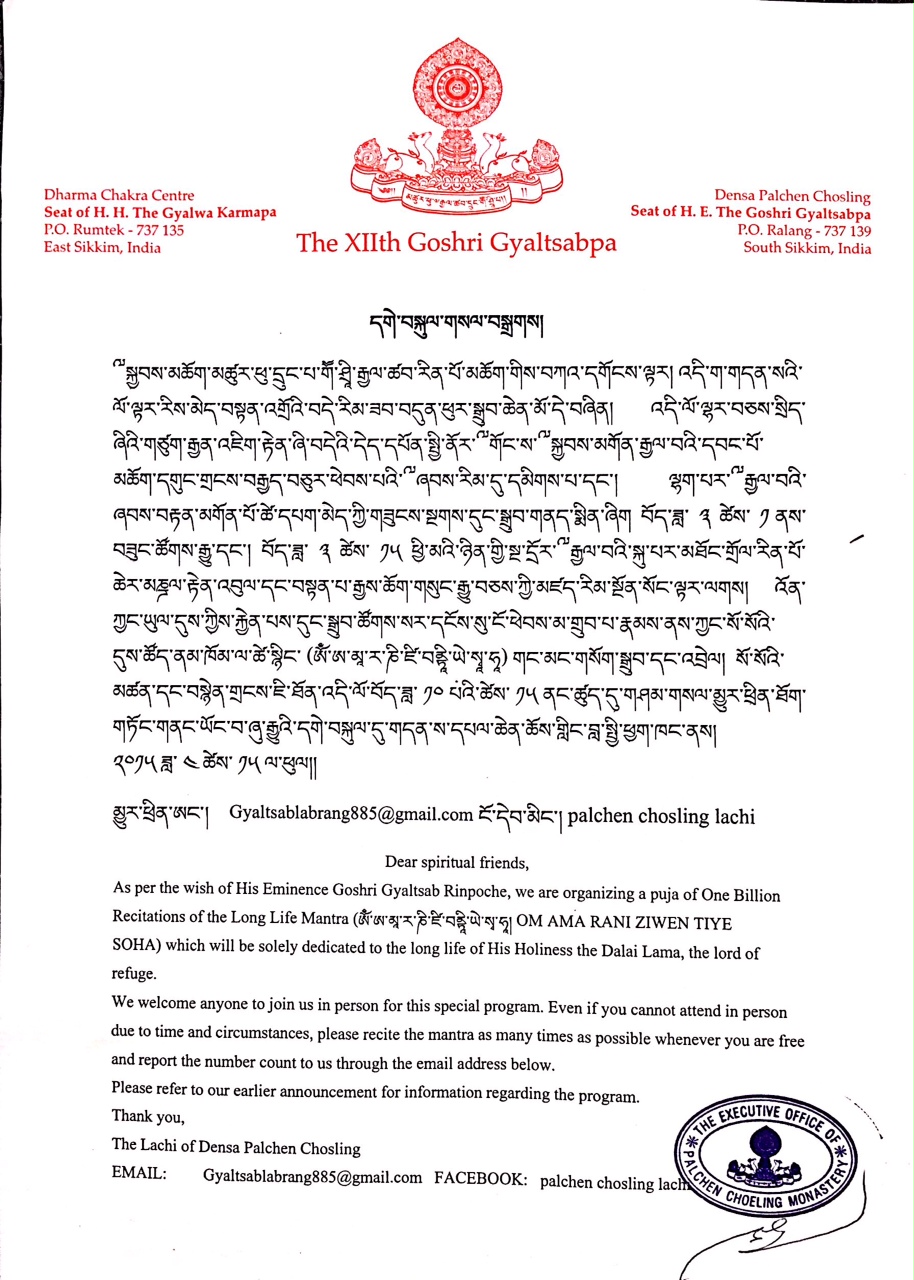 ༄༅།། མཚུར་ཕུ་རྒྱལ་ཚབ་དྲུང་གོ་ཤྲཱི་པ།། །།
Dharma Chakra Centre
Seat of H. H. The Gyalwa Karmapa
P.O. Rumtek - 737 135
East Sikkim, India
Densa Palchen Chosling
Seat of H. E. The Goshri Gyaltsabpa
P.O. Ralang - 737 139
South Sikkim, India
The XIIth Goshri Gyaltsabpa
དགེ་བསྐུལ་གསལ་བསྒྲགས།
༸སྐྱབས་མཆོག་མཚུར་ཕུ་དྲུང་པ་གོཾ་ཤྲཱི་རྒྱལ་ཚབ་རིན་པོ་མཆོག་གིས་བཀའ་དགོངས་ལྟར། འདི་ག་གདན་སའི་
ལོ་ལྟར་རིས་མེད་བསྟན་འགྲོའི་བདེ་རིམ་ཟབ་བདུན་ཕུར་སྒྲུབ་ཆེན་མོ་དེ་བཞིན། འདི་ལོ་ལྷར་བཅས་སྲིད་
ཞིའི་གཙུག་རྒྱན་འཇིག་རྟེན་ཞི་བདེའི་དེད་དཔོན་སྤྱི་ནོར་༸གོང་ས་༸སྐྱབས་མགོན་རྒྱལ་བའི་དབང་པོ་
མཆོག་དགུང་གྲངས་བརྒྱད་བཅུར་ཕེབས་པའི་༸ཞབས་རིམ་དུ་དམིགས་པ་དང་། ལྷག་པར་༸རྒྱལ་བའི་
ཞབས་བརྟན་མགོན་པོ་ཚེ་དཔག་མེད་ཀྱི་གཟུངས་སྔགས་དུང་སྒྲུབ་གནད་སྨིན་ཞིག བོད་ཟླ་ ༣ ཚེས་ ༡ ནས་
བཟུང་ཚོགས་རྒྱུ་དང་། བོད་ཟླ་ ༣ ཚེས་ ༡༥ ཕྱི་མའི་ཉིན་གྱི་སྔ་དྲོར་༸རྒྱལ་བའི་སྐུ་པར་མཐོང་གྲོལ་རིན་པོ་
ཆེར་མཎྜལ་རྟེན་འབུལ་དང་བསྟན་པ་རྒྱས་ཆོག་གསུང་རྒྱུ་བཅས་ཀྱི་མཛད་རིམ་སྔོན་སོང་ལྟར་ལགས། འོན་
ཀྱང་ཡུལ་དུས་ཀྱིས་རྐྱེན་པས་དུང་སྒྲུབ་ཚོགས་སར་དངོས་སུ་ངོ་ཕེབས་མ་གྲུབ་པ་རྣམས་ནས་ཀྱང་སོ་སོའི་
དུས་ཚོད་ནམ་ཁོམ་ལ་ཚེ་སྙིང་ (ཨོཾ་ཨ་མཱ་ར་ཎི་ཛཱི་བནྟཱི་ཡེ་སྭཱ་ཧཱ) གང་མང་གསོག་སྒྲུབ་དང་འབྲེལ། སོ་སོའི་
མཚན་དང་བསྙེན་གྲངས་ཇི་ཐོན་འདི་ལོ་བོད་ཟླ་ ༡༠ པའི་ཚེས་ ༡༥ ནང་ཚུད་དུ་གཤམ་གསལ་མྱུར་ཕྲིན་ཐོག་
གཏོང་གནང་ཡོང་བ་ཞུ་རྒྱུའི་དགེ་བསྐུལ་དུ་གདན་ས་དཔལ་ཆེན་ཆོས་གླིང་བླ་སྤྱི་ཕྱག་ཁང་ནས།
༢༠༡༥ ཟླ་ ༤ ཚེས་ ༡༥ ལ་ཕུལ།།
མྱུར་ཕྲིན་ཨང་། Gyaltsablabrang885@gmail.com ངོ་དེབ་མིང་། palchen chosling lachi
Dear spiritual friends,
As per the wish of His Eminence Goshri Gyaltsab Rinpoche, we are organizing a puja of One Billion
Recitations of the Long Life Mantra (ཨོཾ་ཨ་མཱ་ར་ཎི་ཛཱི་བནྟཱི་ཡེ་སྭཱ་ཧཱ། OM AMA RANI ZIWEN TIYE
SOHA) which will be solely dedicated to the long life of His Holiness the Dalai Lama, the lord of
refuge.
We welcome anyone to join us in person for this special program. Even if you cannot attend in person
due to time and circumstances, please recite the mantra as many times as possible whenever you are free
and report the number count to us through the email address below.
Please refer to our earlier announcement for information regarding the program.
Thank you,
The Lachi of Densa Palchen Chosling
EMAIL: Gyaltsablabrang885@gmail.com FACEBOOK: palchen chosling lachi
THE EXECUTIVE OFFICE OF
PALCHEN CHOELING MONASTERY